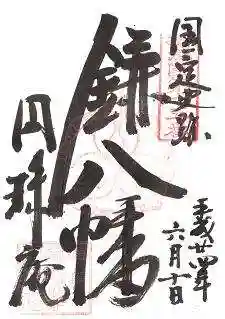 国指定史跡
鎌八幡
円珠庵
平成廿四年
六月十日